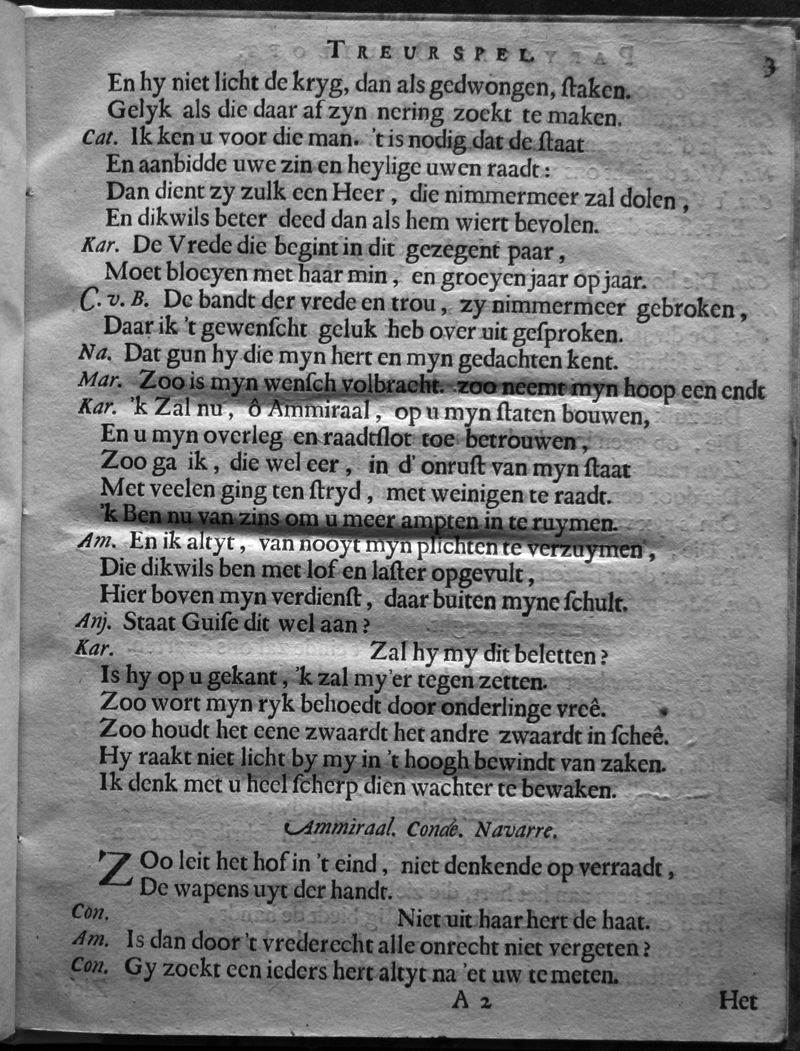 TREURSPEL. 3
En hy niet licht de kryg, dan als gedwongen, ſtaken.
Gelyk als die daar af zyn nering zoekt te maken.
Cat. Ik ken u voor die man. 't is nodig dat de ſtaat
En aanbidde uwe zin en heylige uwen raadt:
Dan dient zy zulk een Heer, die nimmermeer zal dolen,
En dikwils beter deed dan als hem wiert bevolen.
Kar. De Vrede die begint in dit gezegent paar,
Moet bloeyen met haar min, en groeyen jaar op jaar.
C. v. B. De bandt der vrede en trou, zy nimmermeer gebroken,
Daar ik 't gewenſcht geluk heb over uit geſproken.
Na. Dat gun hy die myn hert en myn gedachten kent.
Mar. Zoo is myn wenſch volbracht. zoo neemt myn hoop een endt
Kar. 'k Zal nu, ô Ammiraal, op u myn ſtaten bouwen,
En u myn overleg en raadtſlot toe betrouwen,
Zoo ga ik, die wel eer, in d' onruſt van myn ſtaat
Met veelen ging ten ſtryd, met weinigen te raadt.
'k Ben nu van zins om u meer ampten in te ruymen.
Am. En ik altyt, van nooyt myn plichten te verzuymen,
Die dikwils ben met lof en laſter opgevult,
Hier boven myn verdienſt, daar buiten myne ſchult.
Anj. Staat Guiſe dit wel aan?
Kar. Zal hy my dit beletten?
Is hy op u gekant, 'k zal my'er tegen zetten.
Zoo wort myn ryk behoedt door onderlinge vreê.
Zoo houdt het eene zwaardt het andre zwaardt in ſcheê.
Hy raakt niet licht by my in 't hoogh bewindt van zaken.
Ik denk met u heel ſcherp dien wachter te bewaken.
Ammiraal. Condé. Navarre.
ZOo leit het hof in 't eind, niet denkende op verraadt,
De wapens uyt der handt.
Con. Niet uit haar hert de haat.
Am. Is dan door 't vrederecht alle onrecht niet vergeten?
Con. Gy zoekt een ieders hert altyt na 'et uw te meten.
A 2 Het